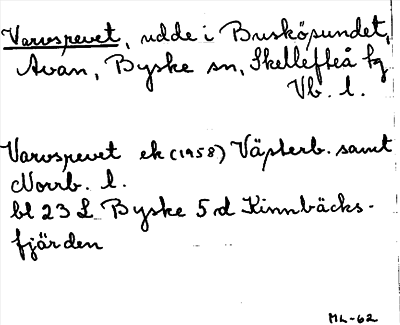 Varvspevet, udde i Busköpundet,
Avan, Byske sn, Skellefteå kg
Vb. l.
Varvspevet ek (1958) Västerb. samt
Norrb. l.
bl 23 L Byske 5 d Kinnbäcks-
fjärden
ML-62